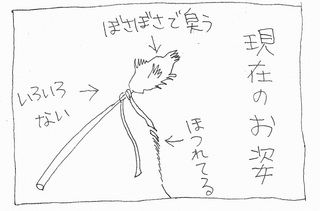 現在のお姿
ぼさぼさで臭う
ほつれてる
いろいろ
ない